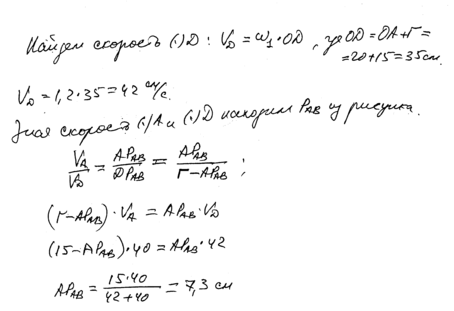 Найдем скорость (·)D: V_D = ω₁·OD, где OD = OA+r =
= 20+15 = 35 см.
V_D = 1,2·35 = 42 см/с.
Зная скорость (·)A и (·)D находим P_AB из рисунка.
V_A/V_D = AP_AB/DP_AB = AP_AB/(r−AP_AB);
(r−AP_AB)·V_A = AP_AB·V_D
(15−AP_AB)·40 = AP_AB·42
AP_AB = 15·40/(42+40) = 7,3 см